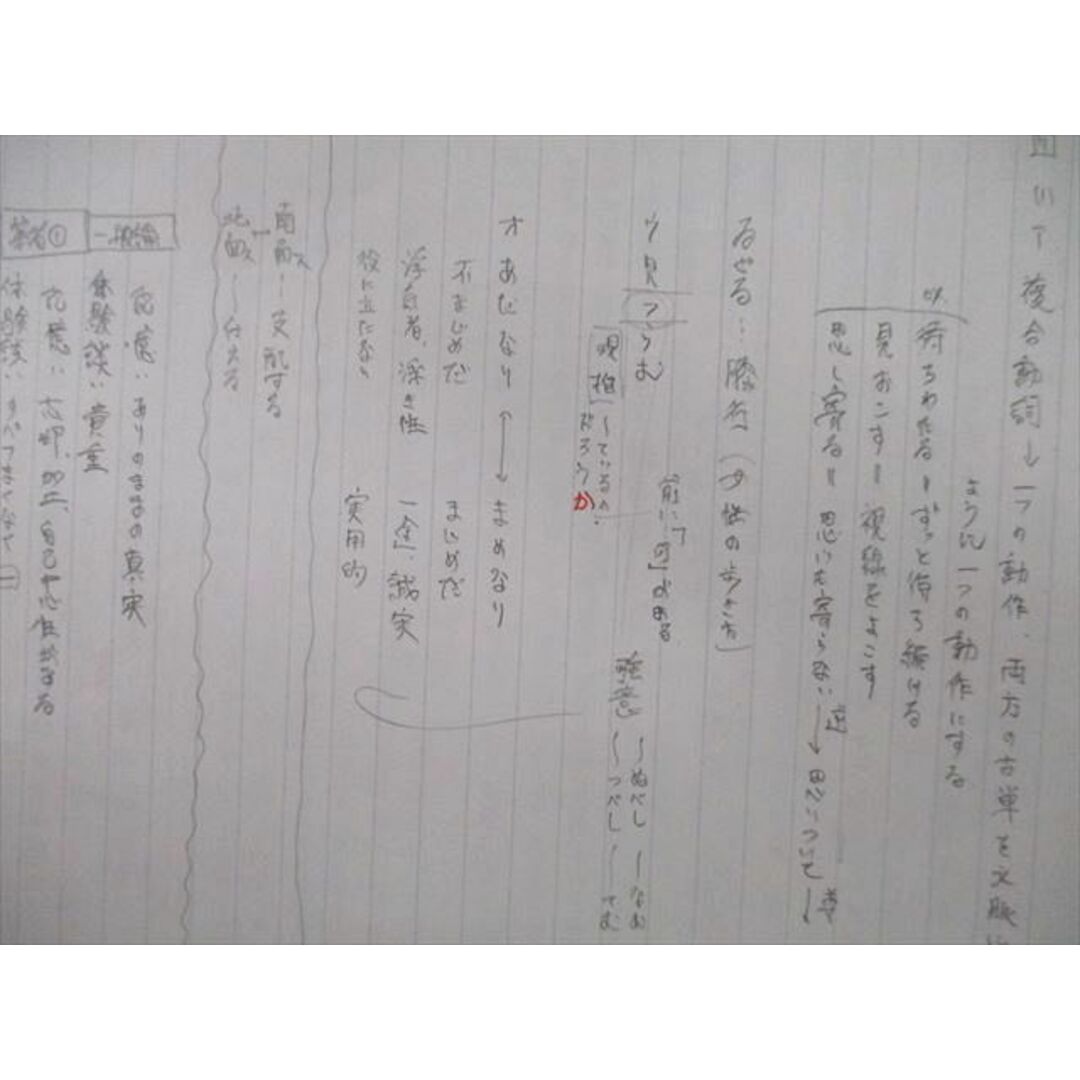 複合動詞→一つの動作、両方の古単を文脈に
ように一つの動作にする
ex. 待ちわたる＝ずっと待ち続ける
見おこす＝視線をよこす
思ひ寄る＝思いも寄らない→逆
ゐざる…膝行（女性の歩き方）
前に「の」がある
ウ 見つらむ
現推 〜ているの
だろうか
強意 〜ぬべし 〜なむ
〜つべし 〜てむ
オ あだなり ↔ まめなり
不まじめだ まじめだ
浮気者、浮き性 一途、誠実
役に立たない 実用的
南面ス― 支配する
北面ス― 仕える
一般論
ありのままの真実
体験談は貴重
筆者①
体験談は すべてまで